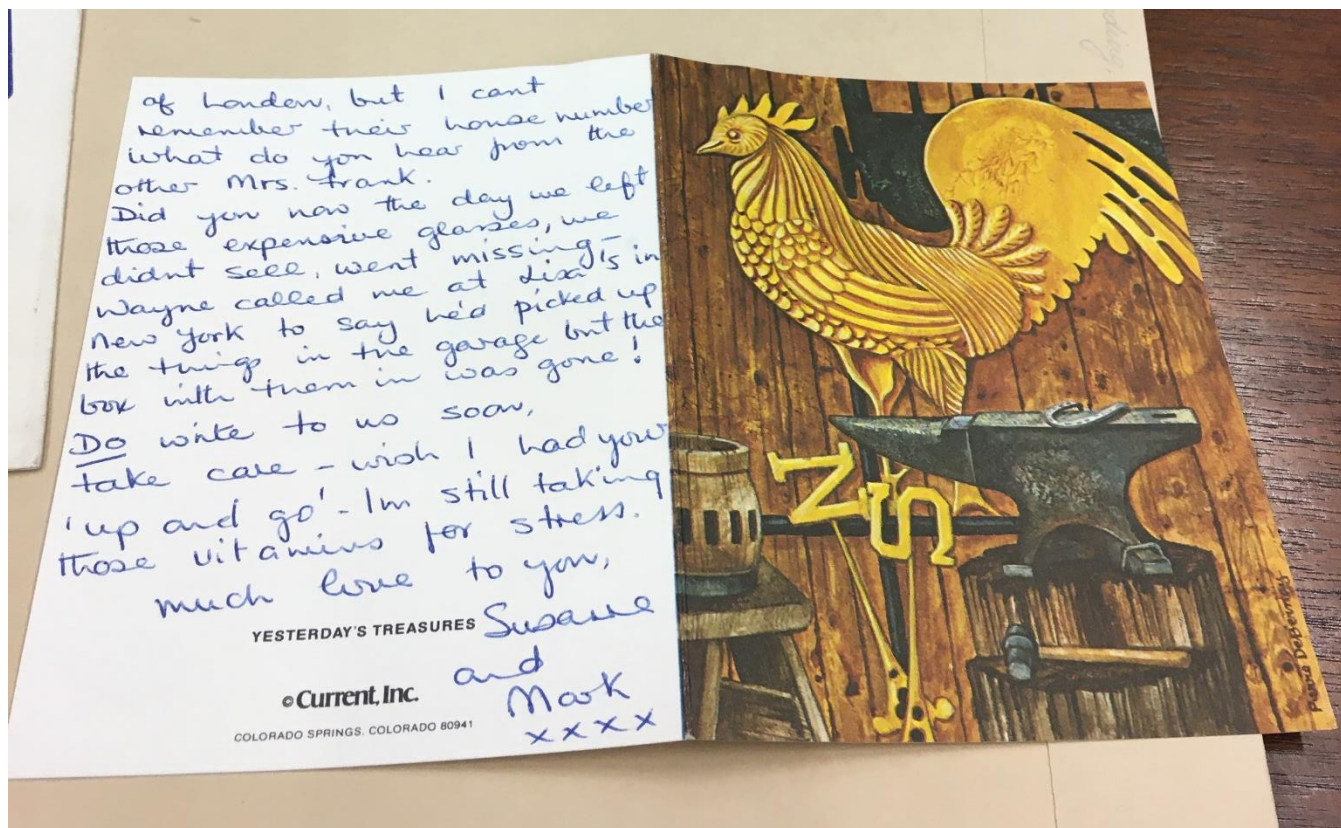 of London, but I cant
remember their house number
what do you hear from the
other Mrs. Frank.
Did you now the day we left
those expensive glasses, we
didnt sell, went missing -
Wayne called me at Lisa's in
New York to say he'd picked up
the things in the garage but the
box with them in was gone!
Do write to us soon,
take care - wish I had your
'up and go' - Im still taking
those vitamins for stress.
much love to you,
Susanne
and
Mark
xxxx
YESTERDAY'S TREASURES
© Current, Inc.
COLORADO SPRINGS, COLORADO 80941
N
S